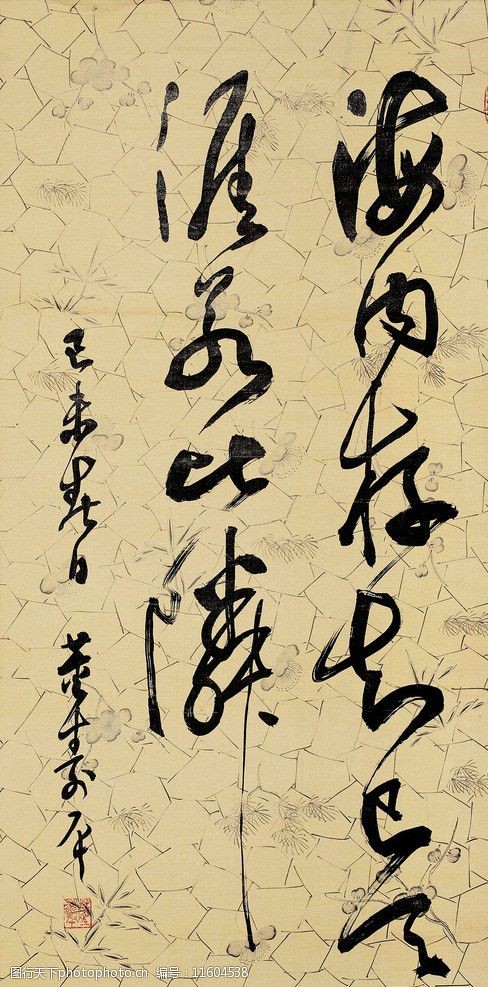 海内存知己天
涯若比隣
己未春日 董壽平
图行天下photophoto.cn 编号：11604538